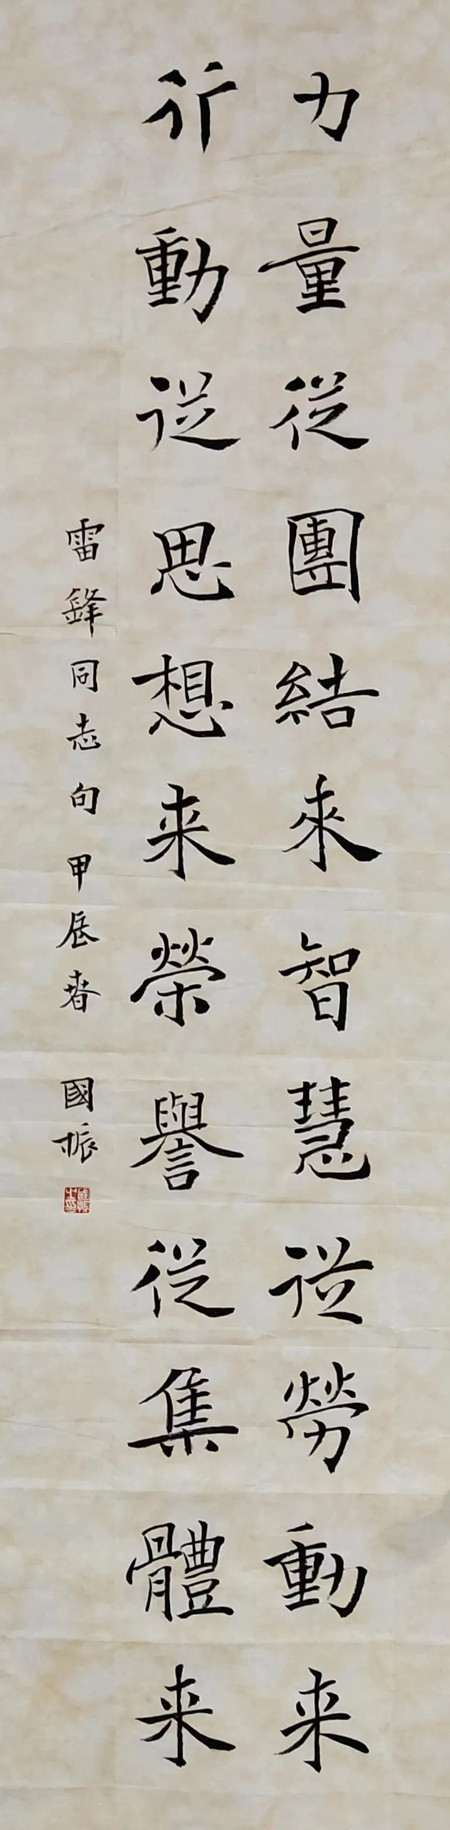 力量從團結來智慧從勞動来
行動從思想来榮譽從集體来
雷鋒同志句甲辰春 國振